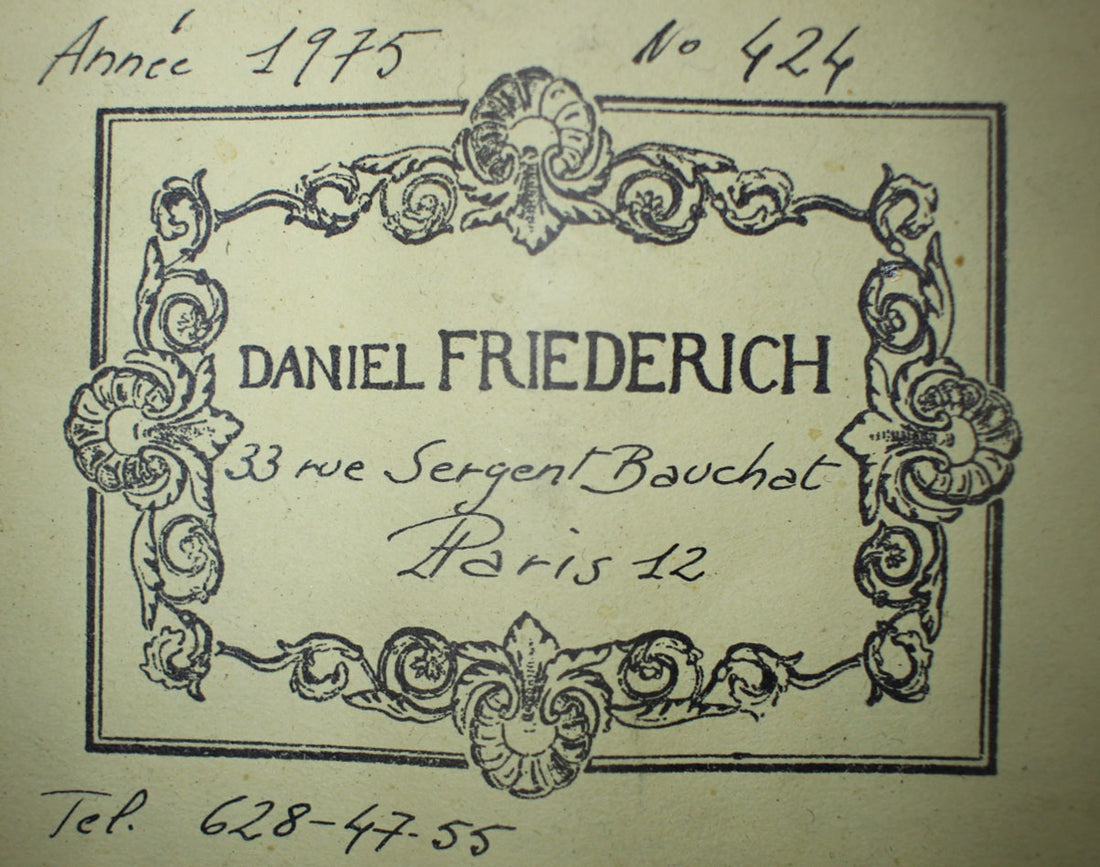 Année 1975 No 424
DANIEL FRIEDERICH
33 rue Sergent Bauchat
Paris 12
Tel. 628-47-55